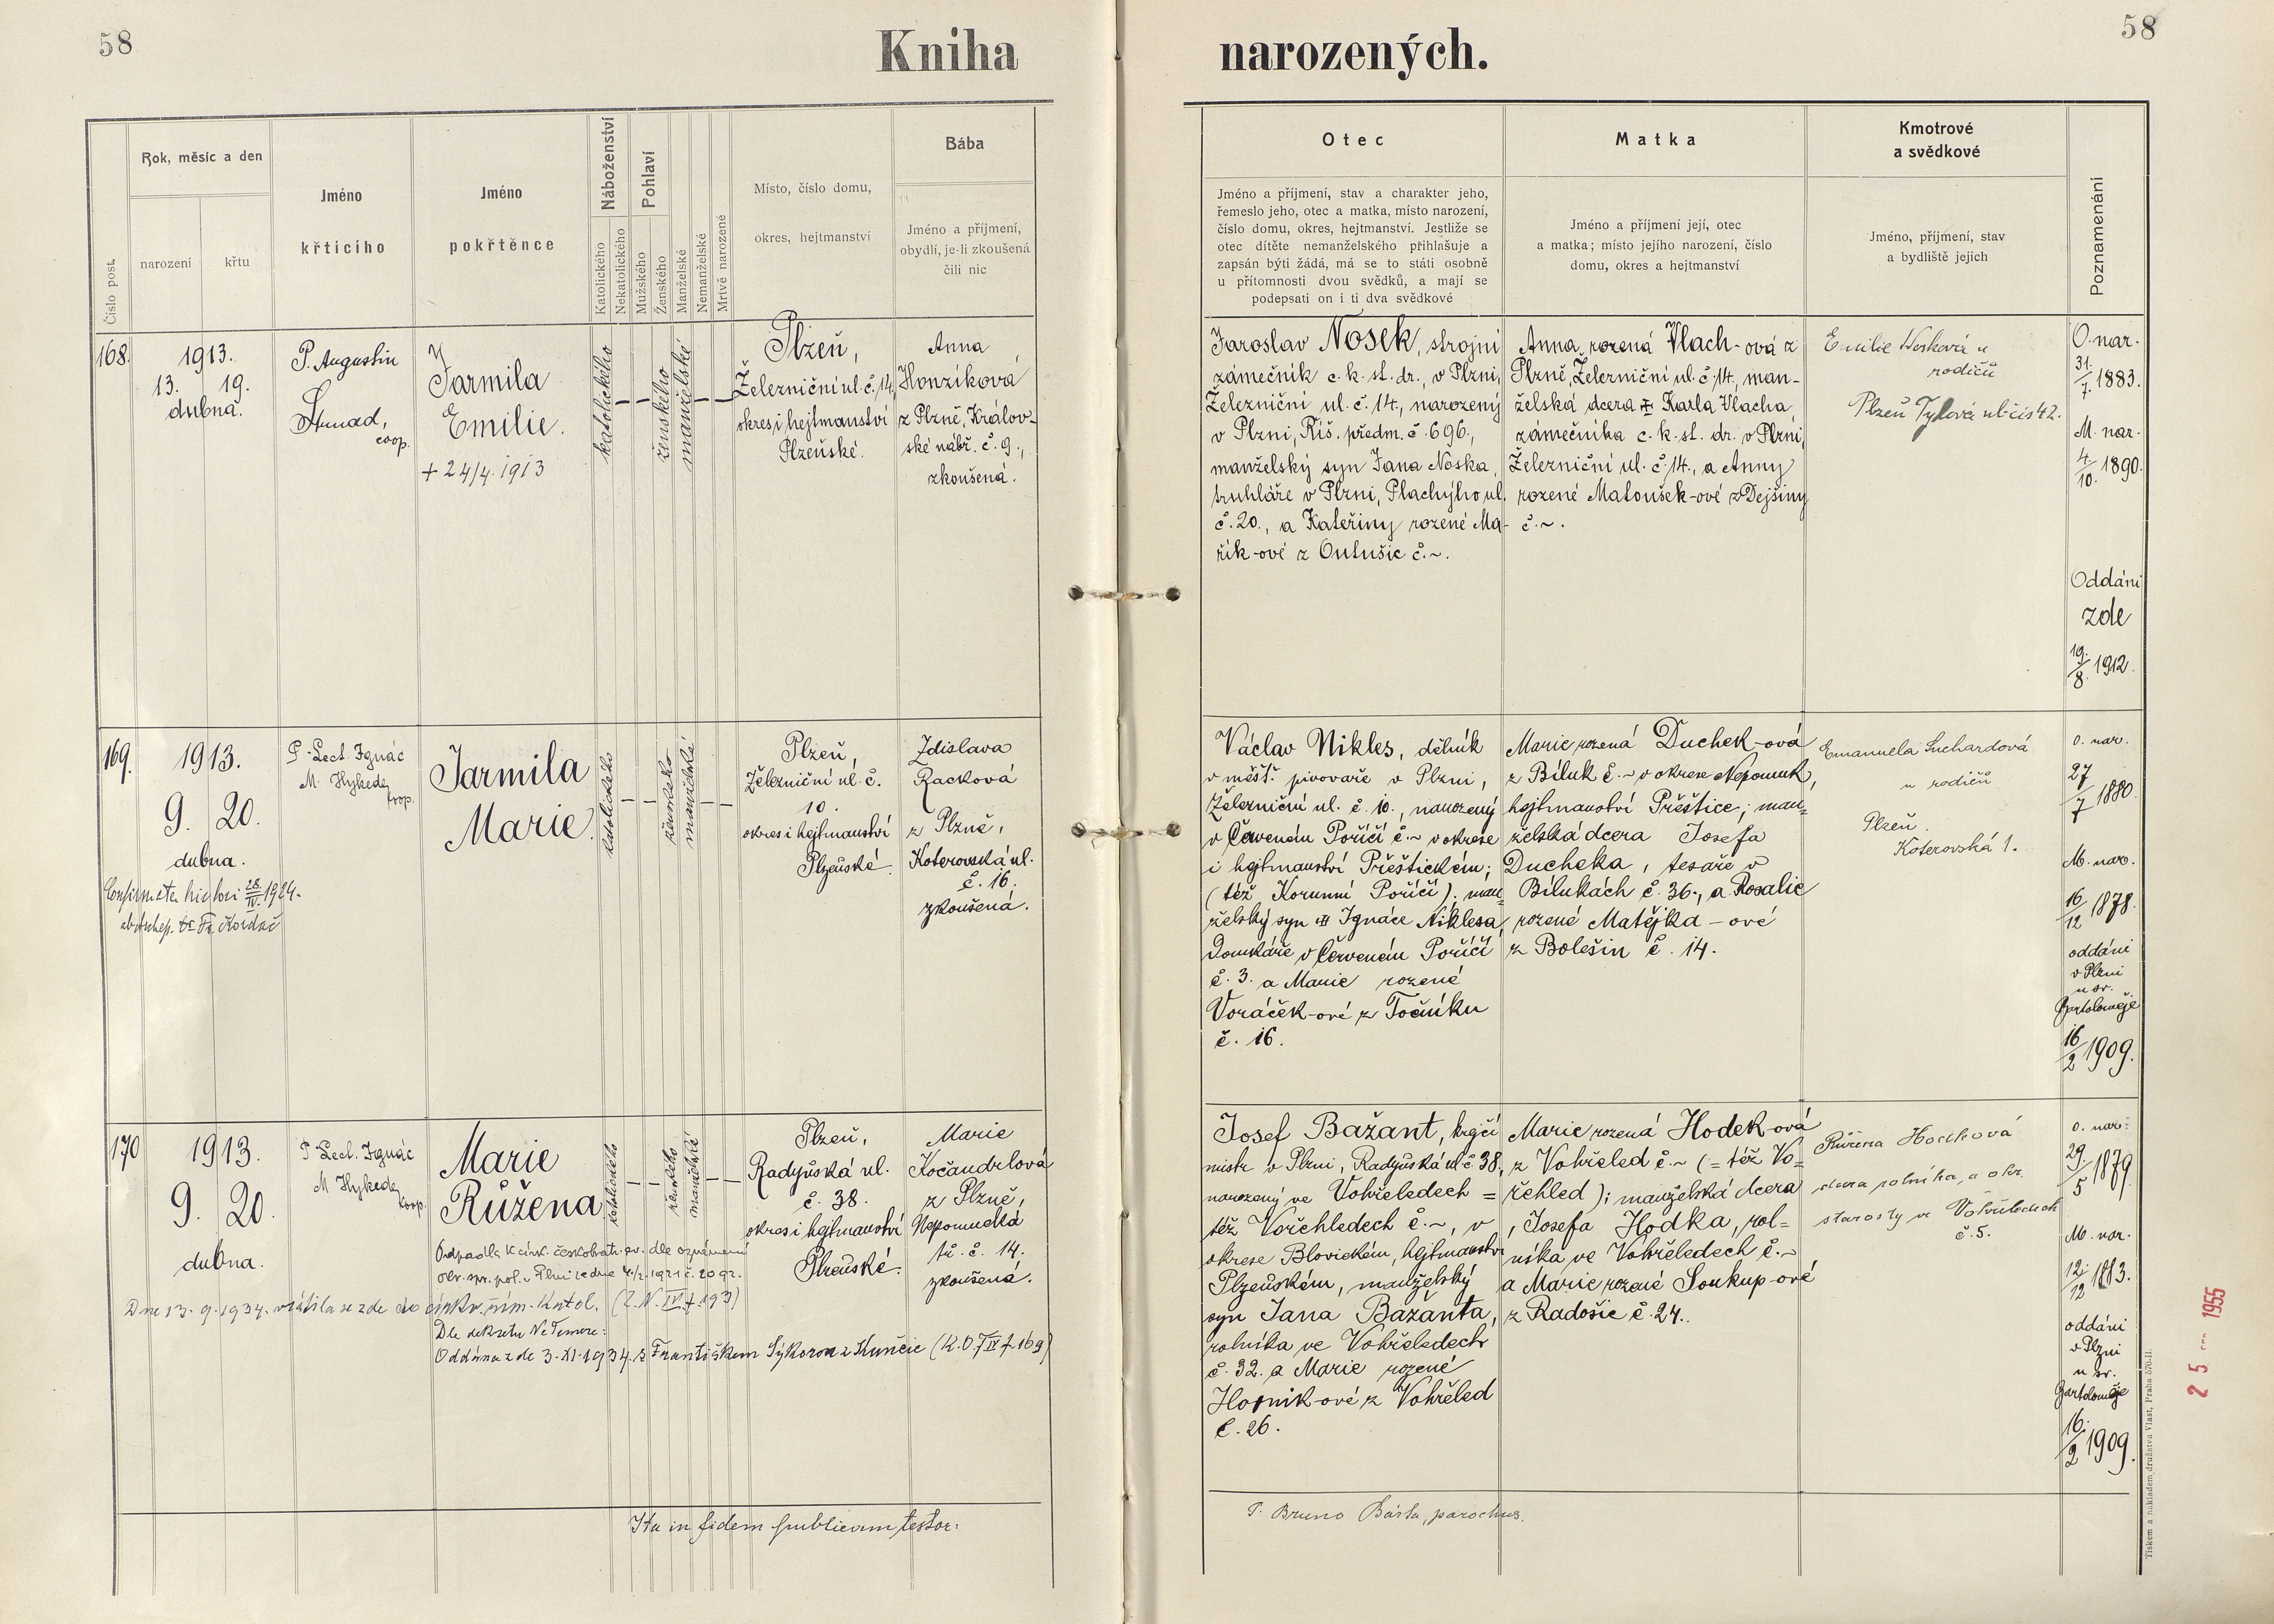 58
Kniha
narozených.
58
Číslo post.
Rok, měsíc a den
narození
křtu
Jméno
křticího
Jméno
pokřtěnce
Náboženství
Katolického
Nekatolického
Pohlaví
Mužského
Ženského
Manželské
Nemanželské
Mrtvě narozené
Místo, číslo domu,
okres, hejtmanství
Bába
Jméno a příjmení,
obydlí, je-li zkoušená
čili nic
Otec
Jméno a příjmení, stav a charakter jeho,
řemeslo jeho, otec a matka, místo narození,
číslo domu, okres, hejtmanství. Jestliže se
otec dítěte nemanželského přihlašuje a
zapsán býti žádá, má se to státi osobně
u přítomnosti dvou svědků, a mají se
podepsati on i ti dva svědkové
Matka
Jméno a příjmení její, otec
a matka; místo jejího narození, číslo
domu, okres a hejtmanství
Kmotrové
a svědkové
Jméno, příjmení, stav
a bydliště jejich
Poznamenání
168.
1913.
13. 19.
dubna.
P. Augustin
coop.
Jarmila
Emilie.
+ 24/4. 1913
katolického
ženského
manželské
Plzeň,
Železniční ul. č. 14,
okres i hejtmanství
Plzeňské.
Anna
Honzíková
z Plzně, Králov-
ské nábř. č. 9.,
zkoušená.
Jaroslav Nosek, strojní
zámečník c. k. st. dr., v Plzni,
Železniční ul. č. 14., narozený
v Plzni, Říš. předm. č. 696.,
manželský syn Jana Noska,
truhláře v Plzni, Plachýho ul.
č. 20., a Kateřiny rozené Ma-
řík-ové z Outušic č. ~.
Anna, rozená Vlach-ová z
Plzně, Železniční ul. č. 14., man-
želská dcera Karla Vlacha,
zámečníka c. k. st. dr. v Plzni,
Železniční ul. č. 14., a Anny
rozené Matoušek-ové z Dejšiny
č. ~.
Emilie Nosková u
rodičů
Plzeň Tylova ul. čís 42.
O. nar.
31./7. 1883.
M. nar.
4./10. 1890.
Oddáni
zde
19./8. 1912.
169.
1913.
9. 20.
dubna.
P. Lect. Ignác
M. Hykede
coop.
Jarmila
Marie.
katolického
ženského
manželská
Plzeň,
Železniční ul. č.
10.
okres i hejtmanství
Plzeňské.
Zdislava
Racková
z Plzně,
Koterovská ul.
č. 16.
zkoušená.
Václav Nikles, dělník
v měšť. pivovaře v Plzni,
Železniční ul. č. 10., narozený
v Červeném Poříčí č. ~ v okrese
i hejtmanství Přeštickém;
(též Korunní Poříčí); man-
želský syn Ignáce Niklesa,
domkáře v Červeném Poříčí
č. 3. a Marie rozené
Voráček-ové z Točníku
č. 16.
Marie rozená Duchek-ová
z Bíluk č. ~ v okrese Nepomuk,
hejtmanství Přeštice; man-
želská dcera Josefa
Ducheka, tesaře v
Bílukách č. 36., a Rosalie
rozené Matějka-ové
z Bolešin č. 14.
Emanuela Suchardová
u rodičů
Plzeň.
Koterovská 1.
O. nar.
27/7 1880.
M. nar.
16/12 1878.
oddáni
v Plzni
u sv.
Bartoloměje
16/2 1909.
170
1913.
9. 20.
dubna.
P. Lect. Ignác
M. Hykede
coop.
Marie
Růžena
Dne 13. 9. 1934. vrátila se zde do církv. řím. katol.
Dle dekretu Ne Temere:
Oddána zde 3. XI. 1934. s Františkem Sýkorou z Kunčic
katolického
ženského
manželská
Plzeň,
Radyňská ul.
č. 38.
okres i hejtmanství
Plzeňské.
Marie
Kočandrlová
z Plzně,
Nepomucká
tř. č. 14.
zkoušená.
Josef Bažant, krejčí
mistr v Plzni, Radyňská ul. č. 38,
narozený ve Vohřeledech =
též Vořehledech č. ~, v
okrese Blovickém, hejtmanství
Plzeňském, manželský
syn Jana Bažanta,
rolníka ve Vohřeledech
č. 32. a Marie rozené
Horník-ové z Vohřeled
č. 26.
Marie rozená Hodek-ová
z Vohřeled č. ~ (= též Vo-
řehled); manželská dcera
Josefa Hodka, rol-
níka ve Vohřeledech č. ~
a Marie rozené Soukup-ové
z Radošic č. 24.
Růžena Hodková
dcera rolníka, a okr.
starosty ve Vohřeledech
č. 5.
O. nar.
29./5 1879.
M. nar.
12./12 1883.
oddáni
v Plzni
u sv.
Bartoloměje
16./2 1909.
Ita in fidem publicam testor:
P. Bruno Bárta, parochus.
Tiskem a nákladem družstva Vlast, Praha 570-II.
1955